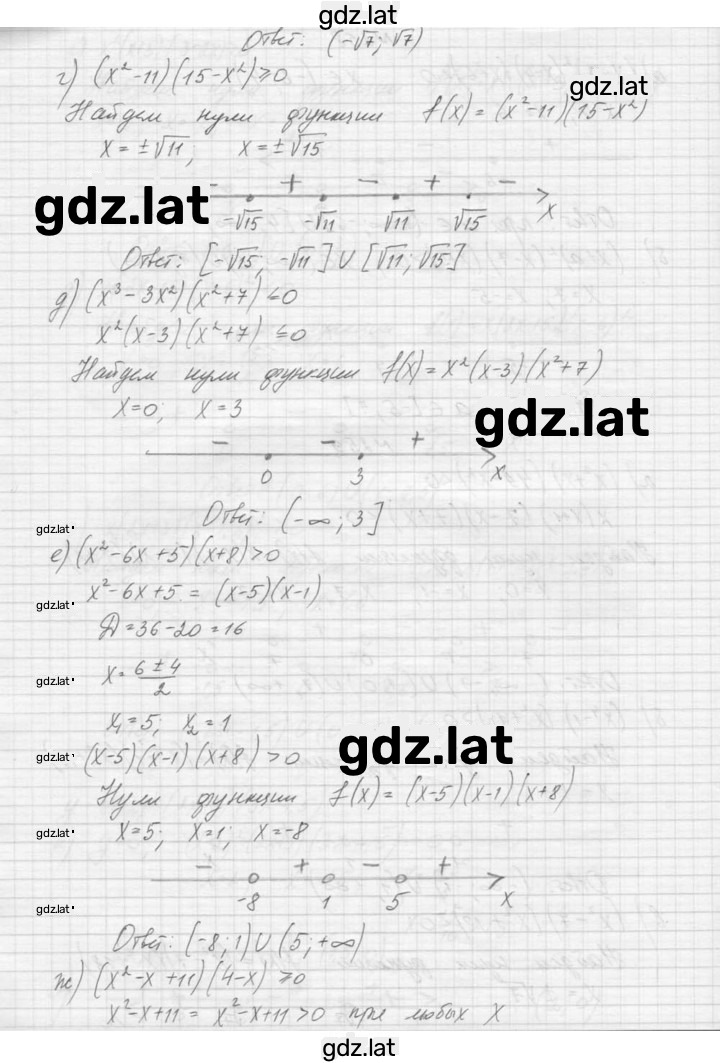 gdz.lat
Ответ: (-√7; √7)
г) (x²-11)(15-x²)≥0
gdz.lat
Найдем нули функции f(x) = (x²-11)(15-x²)
x = ±√11; x = ±√15
- + - + -
gdz.lat
-√15 -√11 √11 √15 x
Ответ: [-√15; -√11] ∪ [√11; √15]
д) (x³-3x²)(x²+7) ≤0
x²(x-3)(x²+7) ≤0
Найдем нули функции f(x) = x²(x-3)(x²+7)
x=0; x=3
gdz.lat
- - +
0 3 x
Ответ: (-∞; 3]
gdz.lat
е) (x²-6x+5)(x+8)>0
x²-6x+5 = (x-5)(x-1)
gdz.lat
Д = 36-20 = 16
x = (6±4)/2
gdz.lat
x₁=5; x₂=1
gdz.lat
gdz.lat
(x-5)(x-1)(x+8)>0
Нули функции f(x) = (x-5)(x-1)(x+8)
gdz.lat
x=5; x=1; x=-8
- + - +
-8 1 5 x
gdz.lat
Ответ: (-8; 1) ∪ (5; +∞)
ж) (x²-x+11)(4-x) ≥0
x²-x+11 = x²-x+11>0 при любых x
gdz.lat